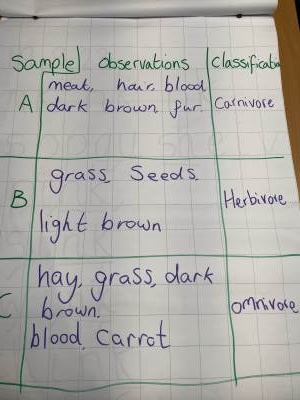 Sample observations Classificatio
meat, hair, blood
A dark brown fur. Carnivore
grass, Seeds.
B Herbivore
light brown
hay, grass, dark
C brown. omnivore
blood, Carrot